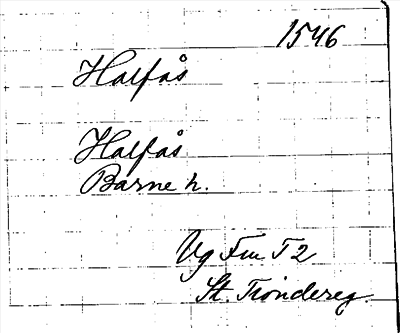 1546
Halfås
Halfås
Barne h.
Vg Fm T 2
St. Tröndereg.